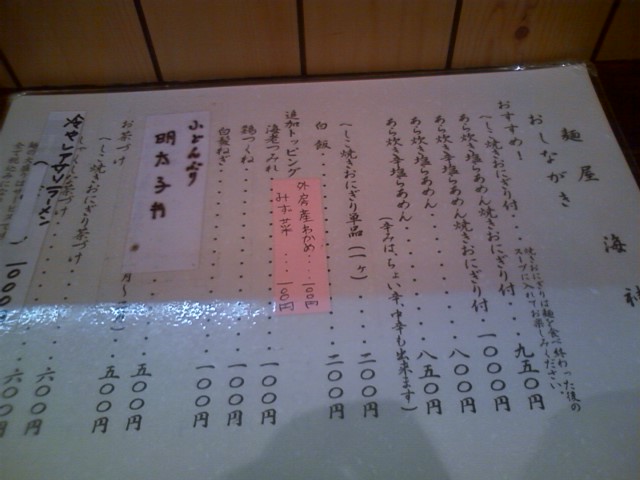 麺屋 海神
おしながき
おすすめ!
へしこ焼きおにぎり付・・・
焼きおにぎりは麺を食べ終わった後の
スープに入れてお楽しみください。
あら炊き塩らあめん焼きおにぎり付・・・九五〇円
あら炊き辛塩らあめん焼きおにぎり付・・・一〇〇〇円
あら炊き塩らあめん・・・八〇〇円
あら炊き辛塩らあめん・・・八五〇円
(辛みは、ちょい辛中辛も出来ます)
へしこ焼きおにぎり単品(一ヶ)・・・二〇〇円
白飯・・・二〇〇円
追加トッピング
外房産わかめ・・・一〇〇円
みず菜・・・一〇〇円
海老つみれ・・・一〇〇円
鶏つくね・・・一〇〇円
白髪ねぎ・・・一〇〇円
小どんぶり
明太子丼
五〇〇円
お茶づけ
へしこ焼きおにぎり茶づけ・・・五〇〇円
茶づけ・・・六〇〇円
六〇〇円